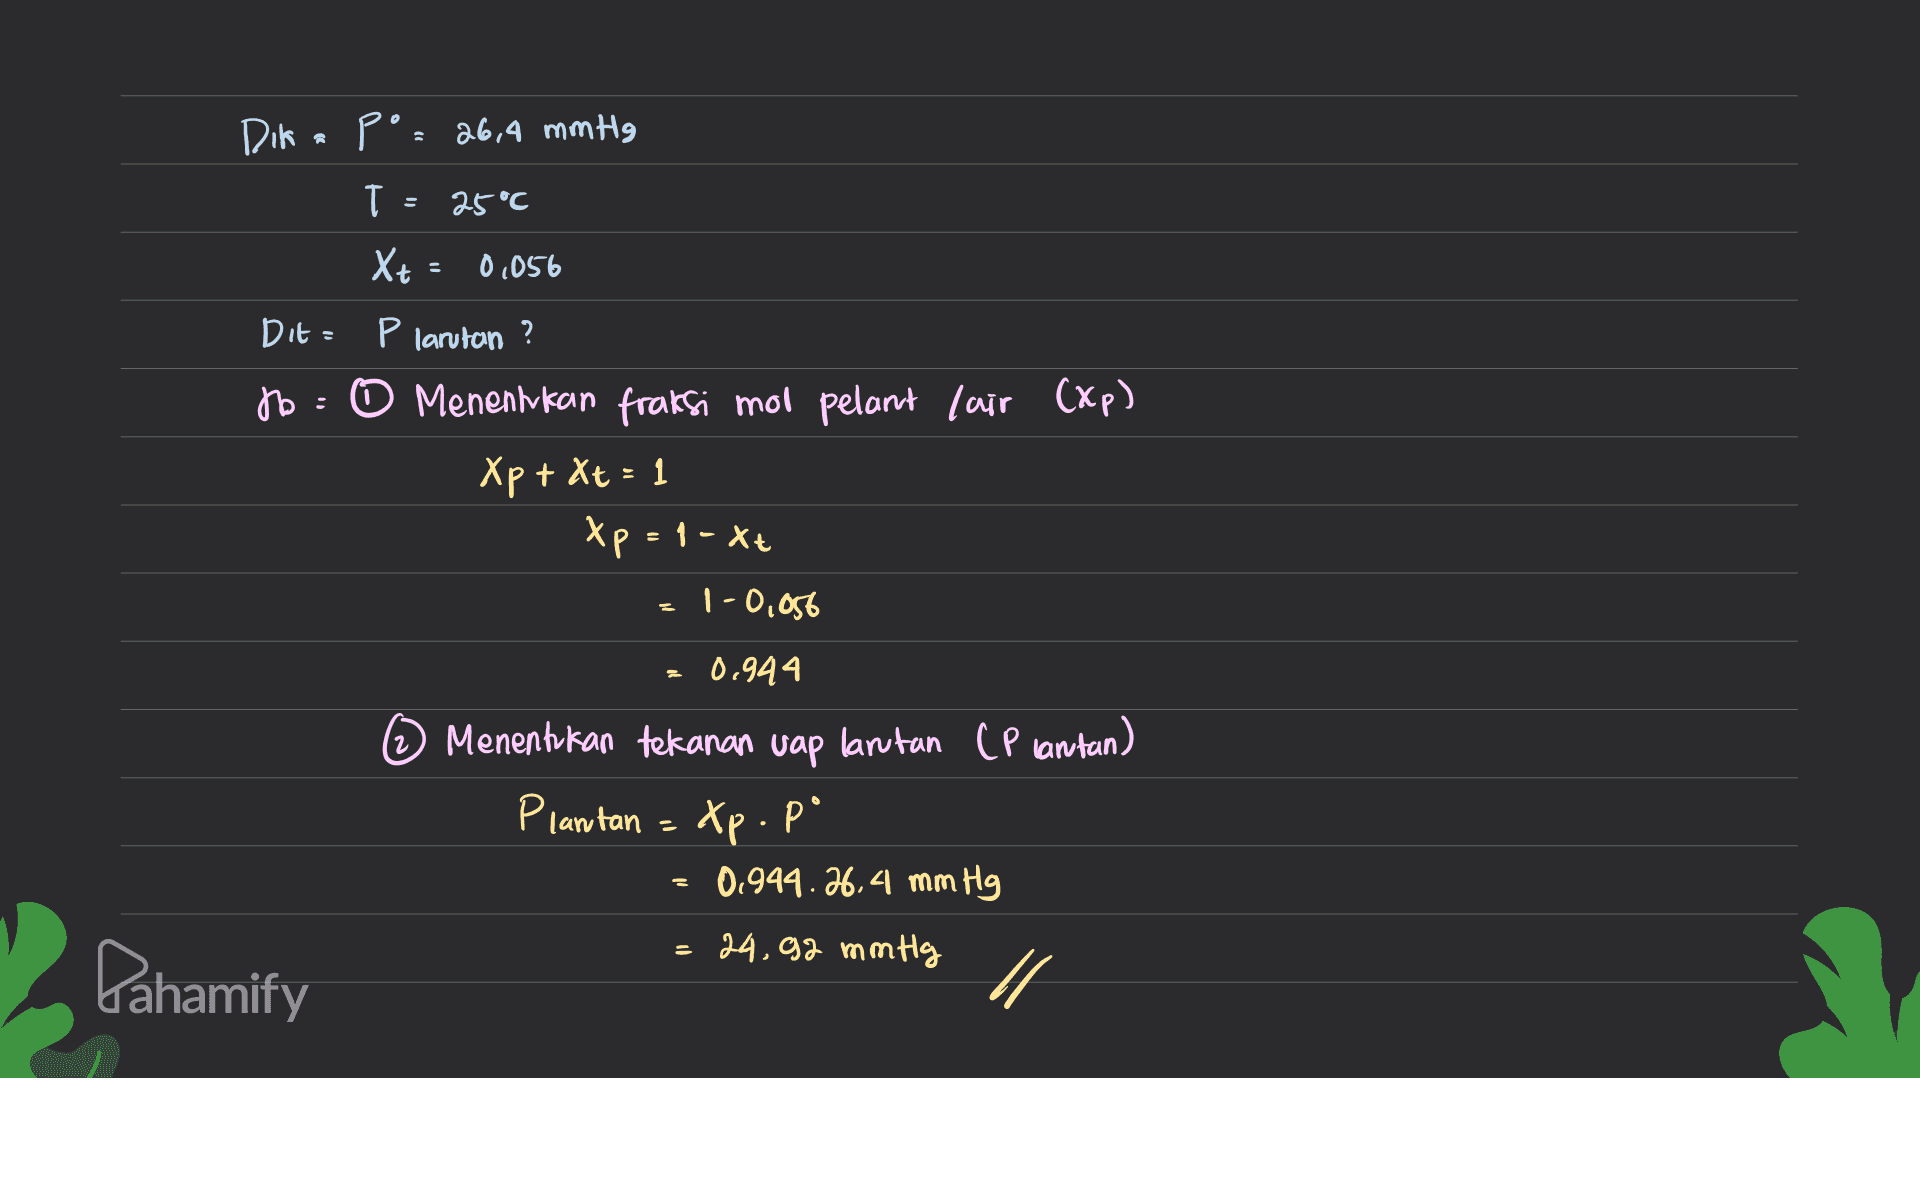 Dik = P° = 26,4 mmHg
T = 25°C
Xt = 0,056
Dit = P larutan ?
Jb = ① Menentukan fraksi mol pelarut /air (Xp)
Xp + Xt = 1
Xp = 1 - Xt
= 1 - 0,056
= 0,944
② Menentukan tekanan uap larutan (P larutan)
P larutan = Xp . P°
= 0,944 . 26,4 mmHg
= 24,92 mmHg //
Pahamify